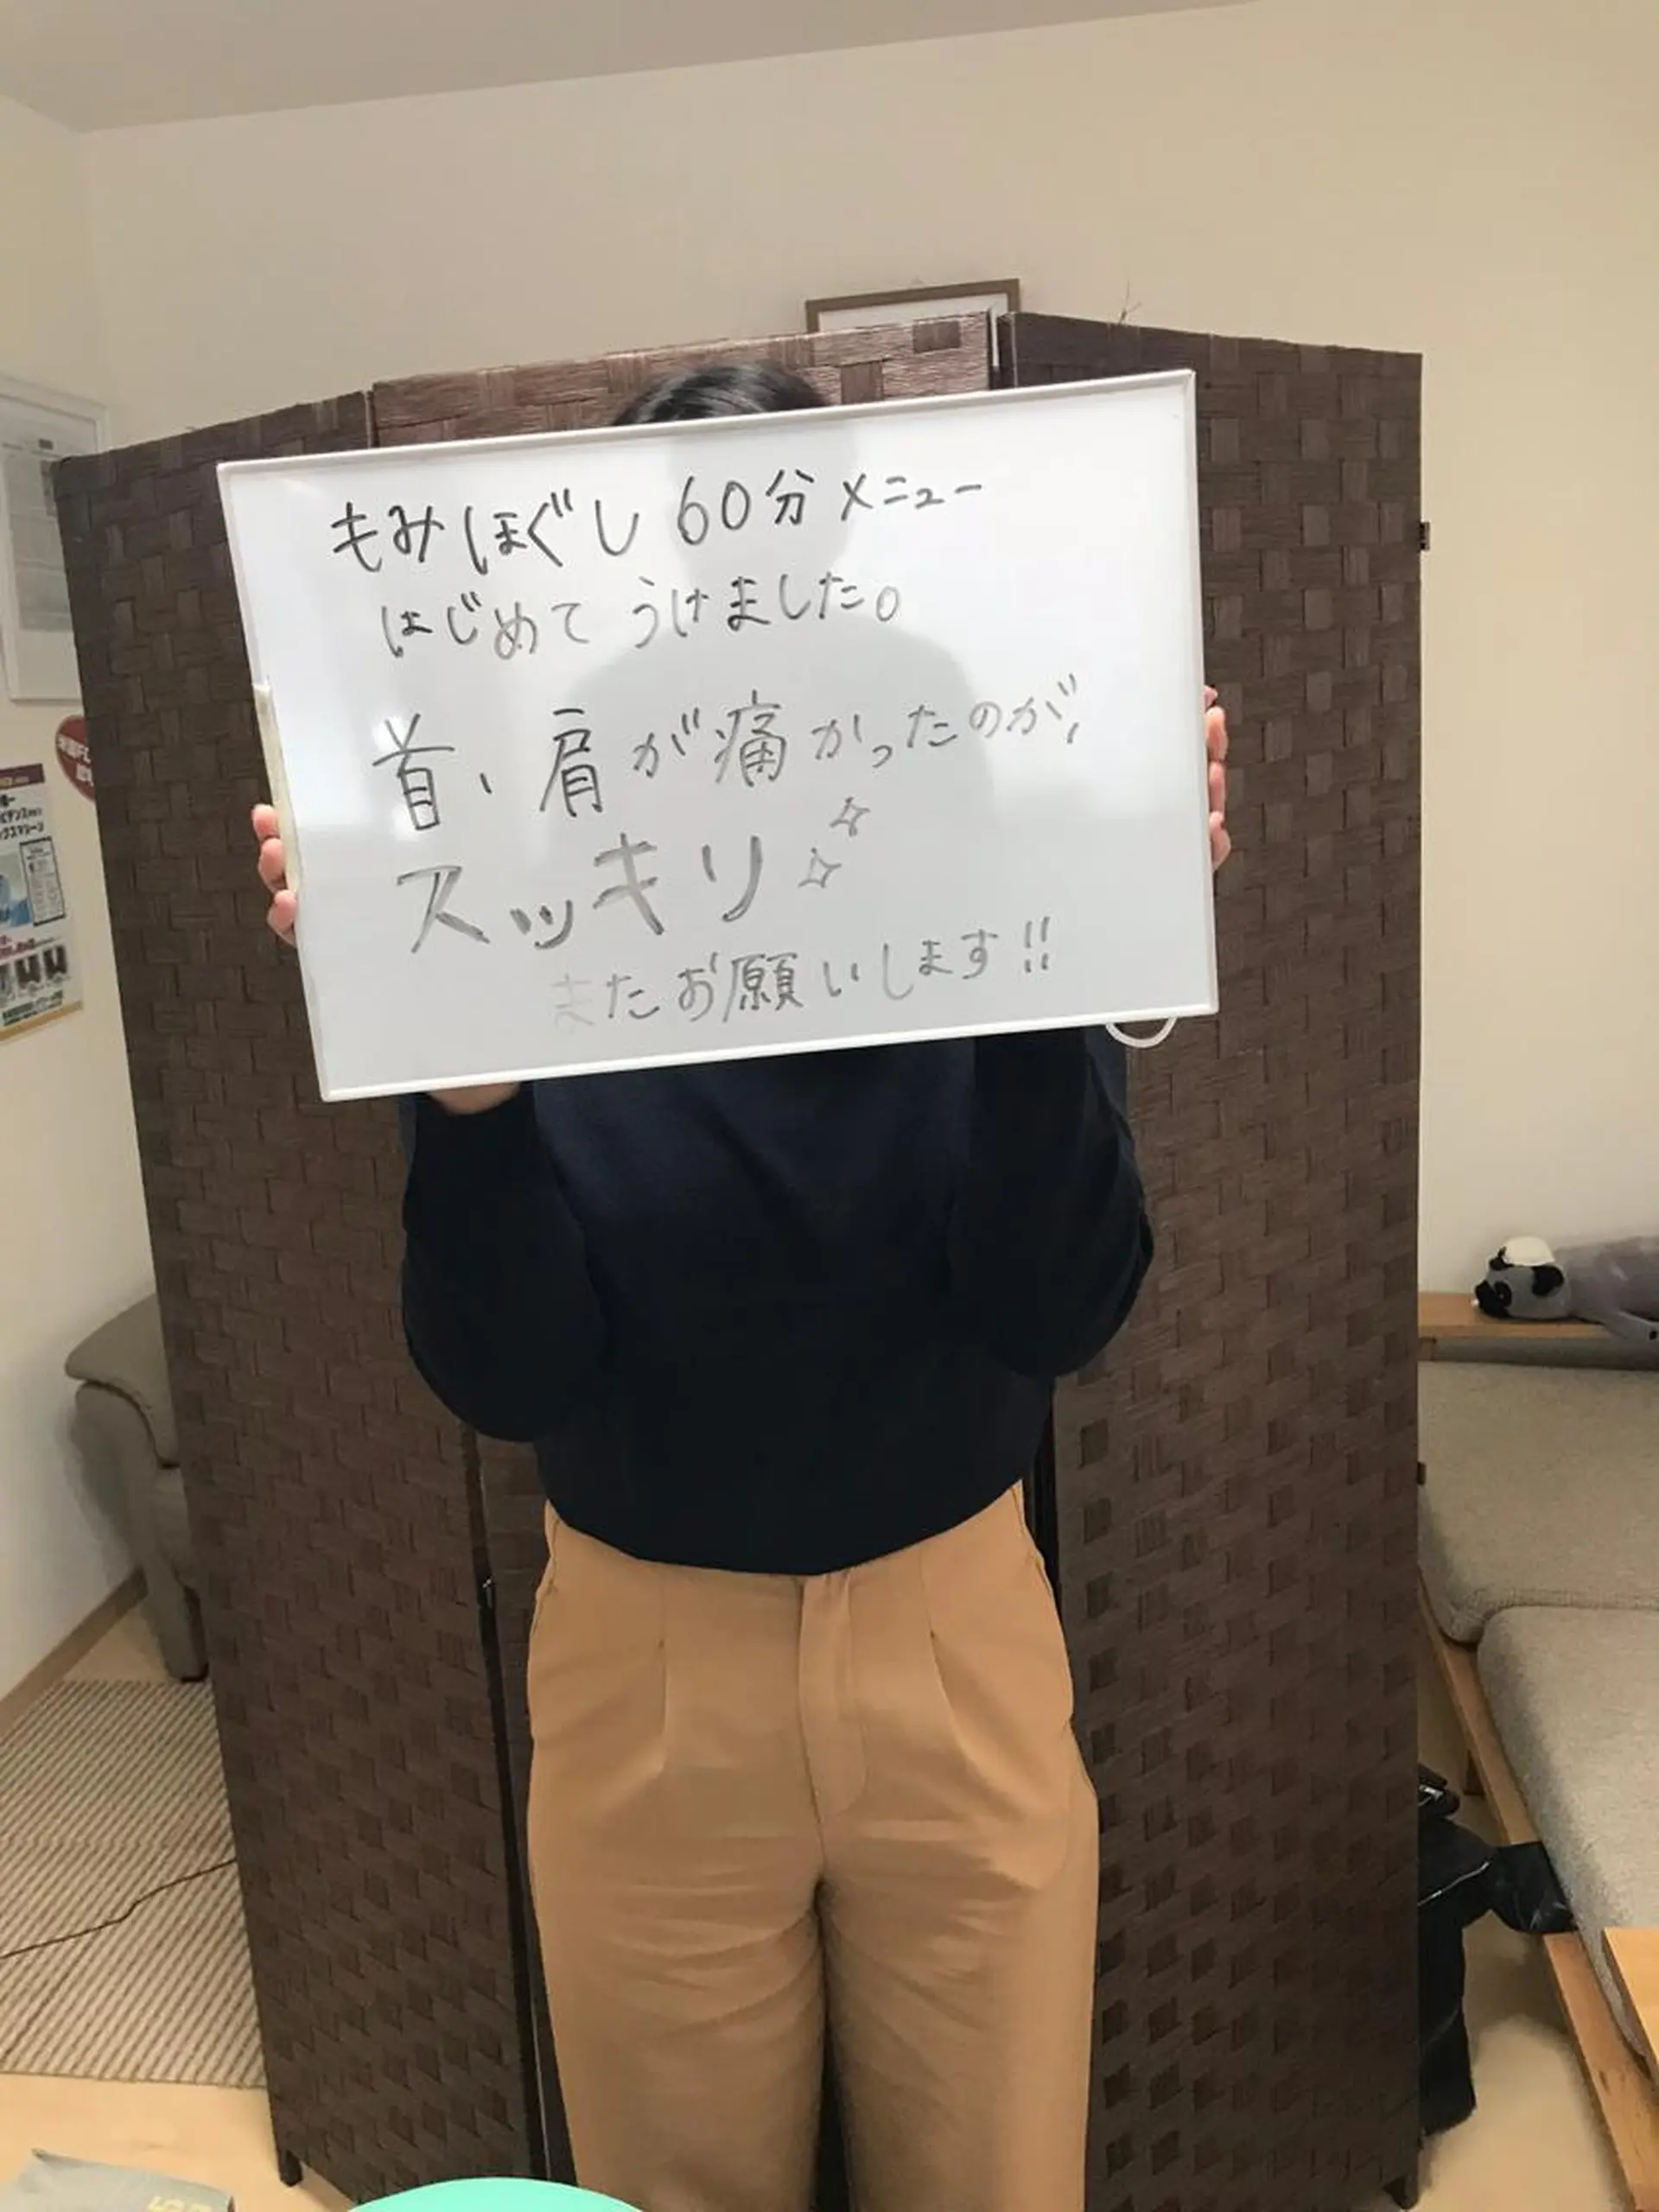 もみほぐし 60分 メニュー
はじめて うけました。
首、肩が痛かったのが、
スッキリ
またお願いします!!